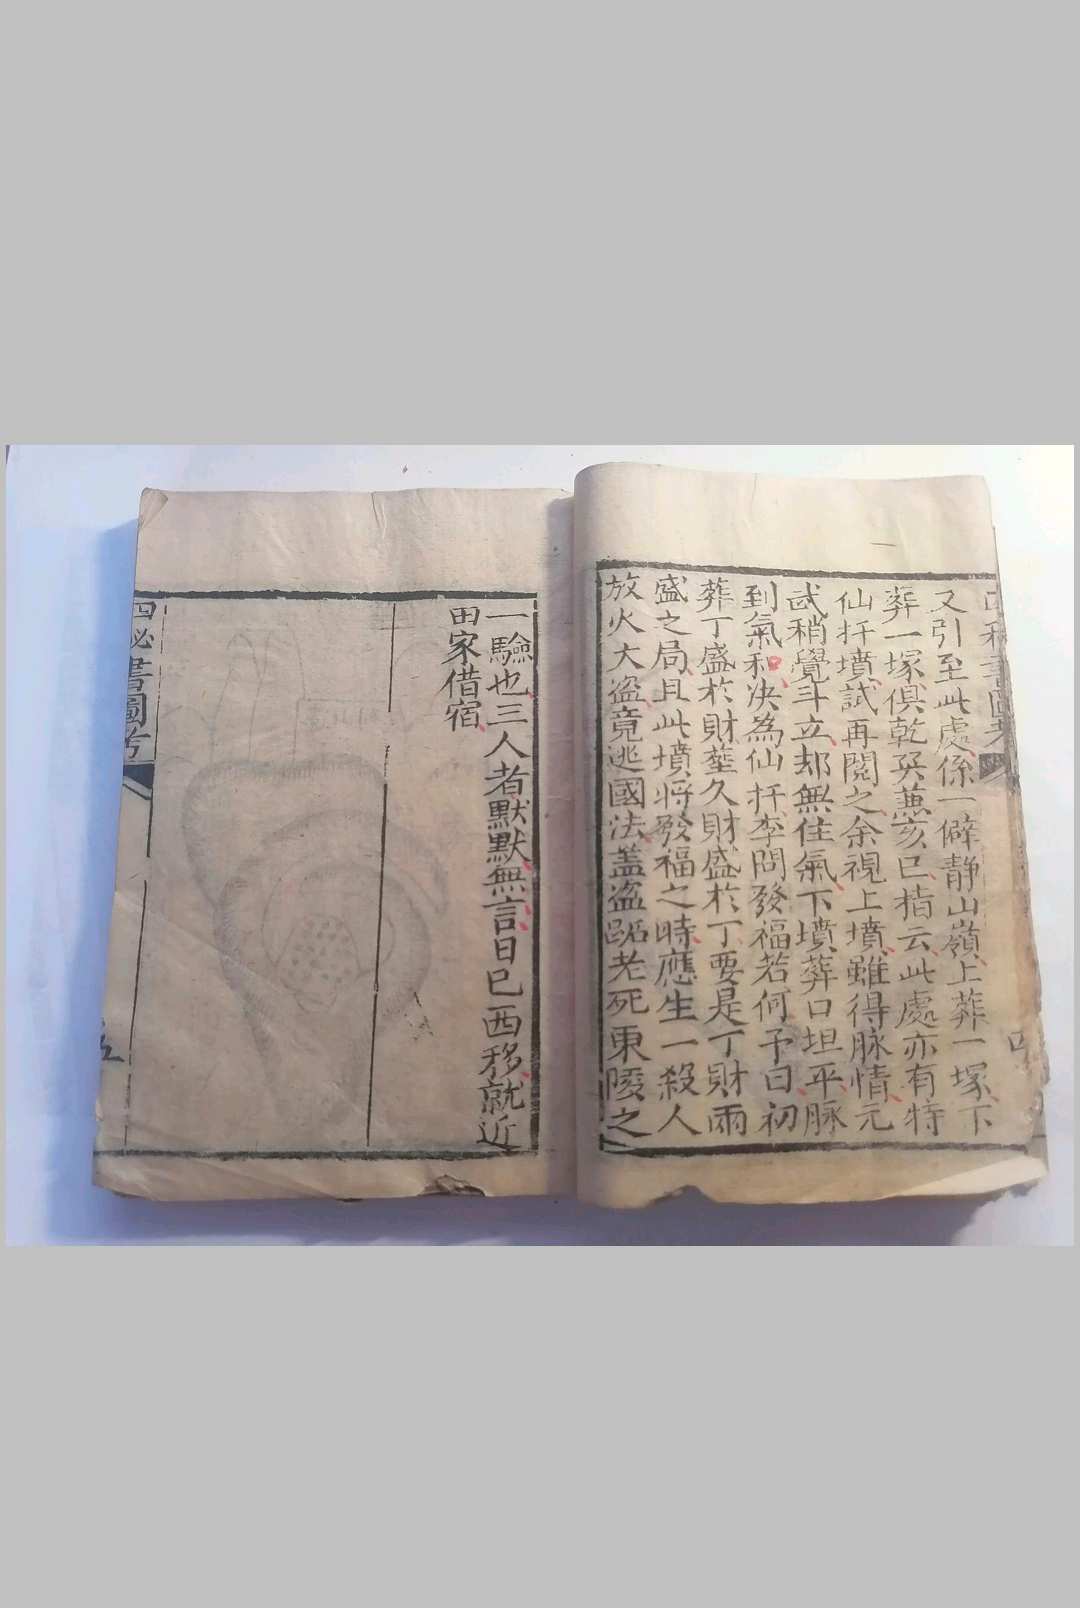 又引至此處係一僻静山嶺上葬一塚下
葬一塚俱乾巽兼亥巳楷云此處亦有特
仙扦墳試再閱之余視上墳雖得脉情元
武稍覺斗立却無住氣下墳葬口坦平脉
到氣和决為仙扦李問發福若何予曰初
葬丁盛於財塟久財盛於丁要是丁財兩
盛之局且此墳將發福之時應生一殺人
放火大盗竟逃國法蓋盗跖老死東陵之
一驗也三人者默默無言日已西移就近
田家借宿
四秘書圖考
五